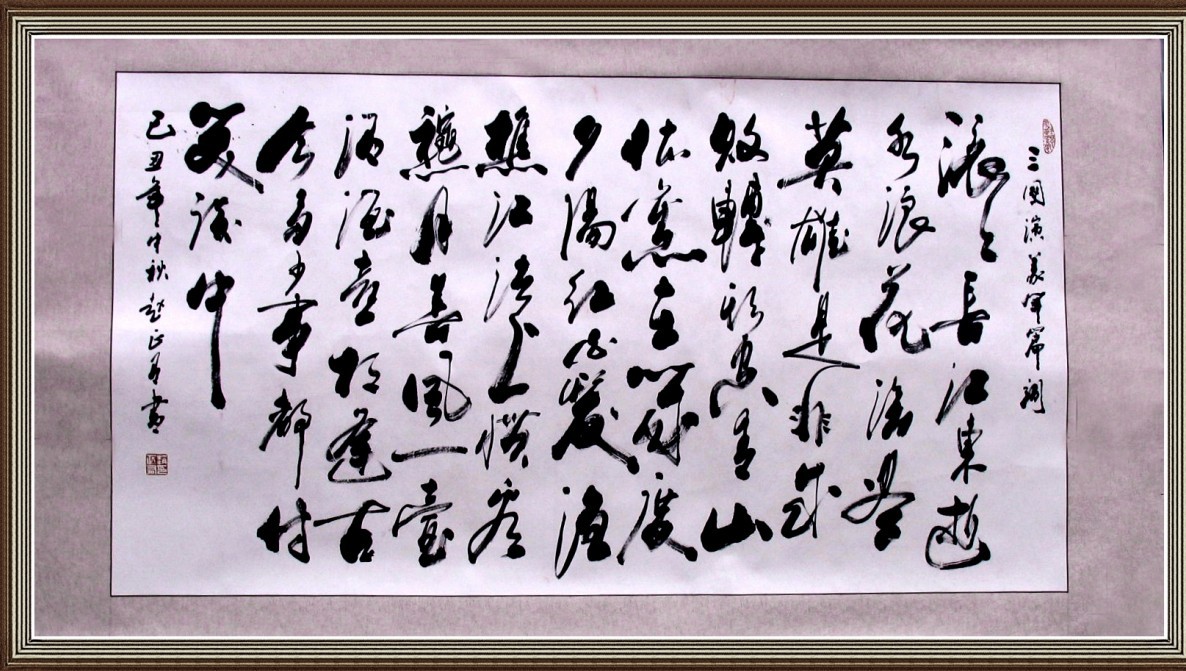 三國演義開篇詞
滾々長江東逝
水浪花淘盡
英雄是非成
敗轉頭空青山
依舊在幾度
夕陽紅白髮漁
樵江渚上慣看
龝月春風一壺
濁酒喜相逢古
今多少事都付
笑談中
己丑年中秋趙正書